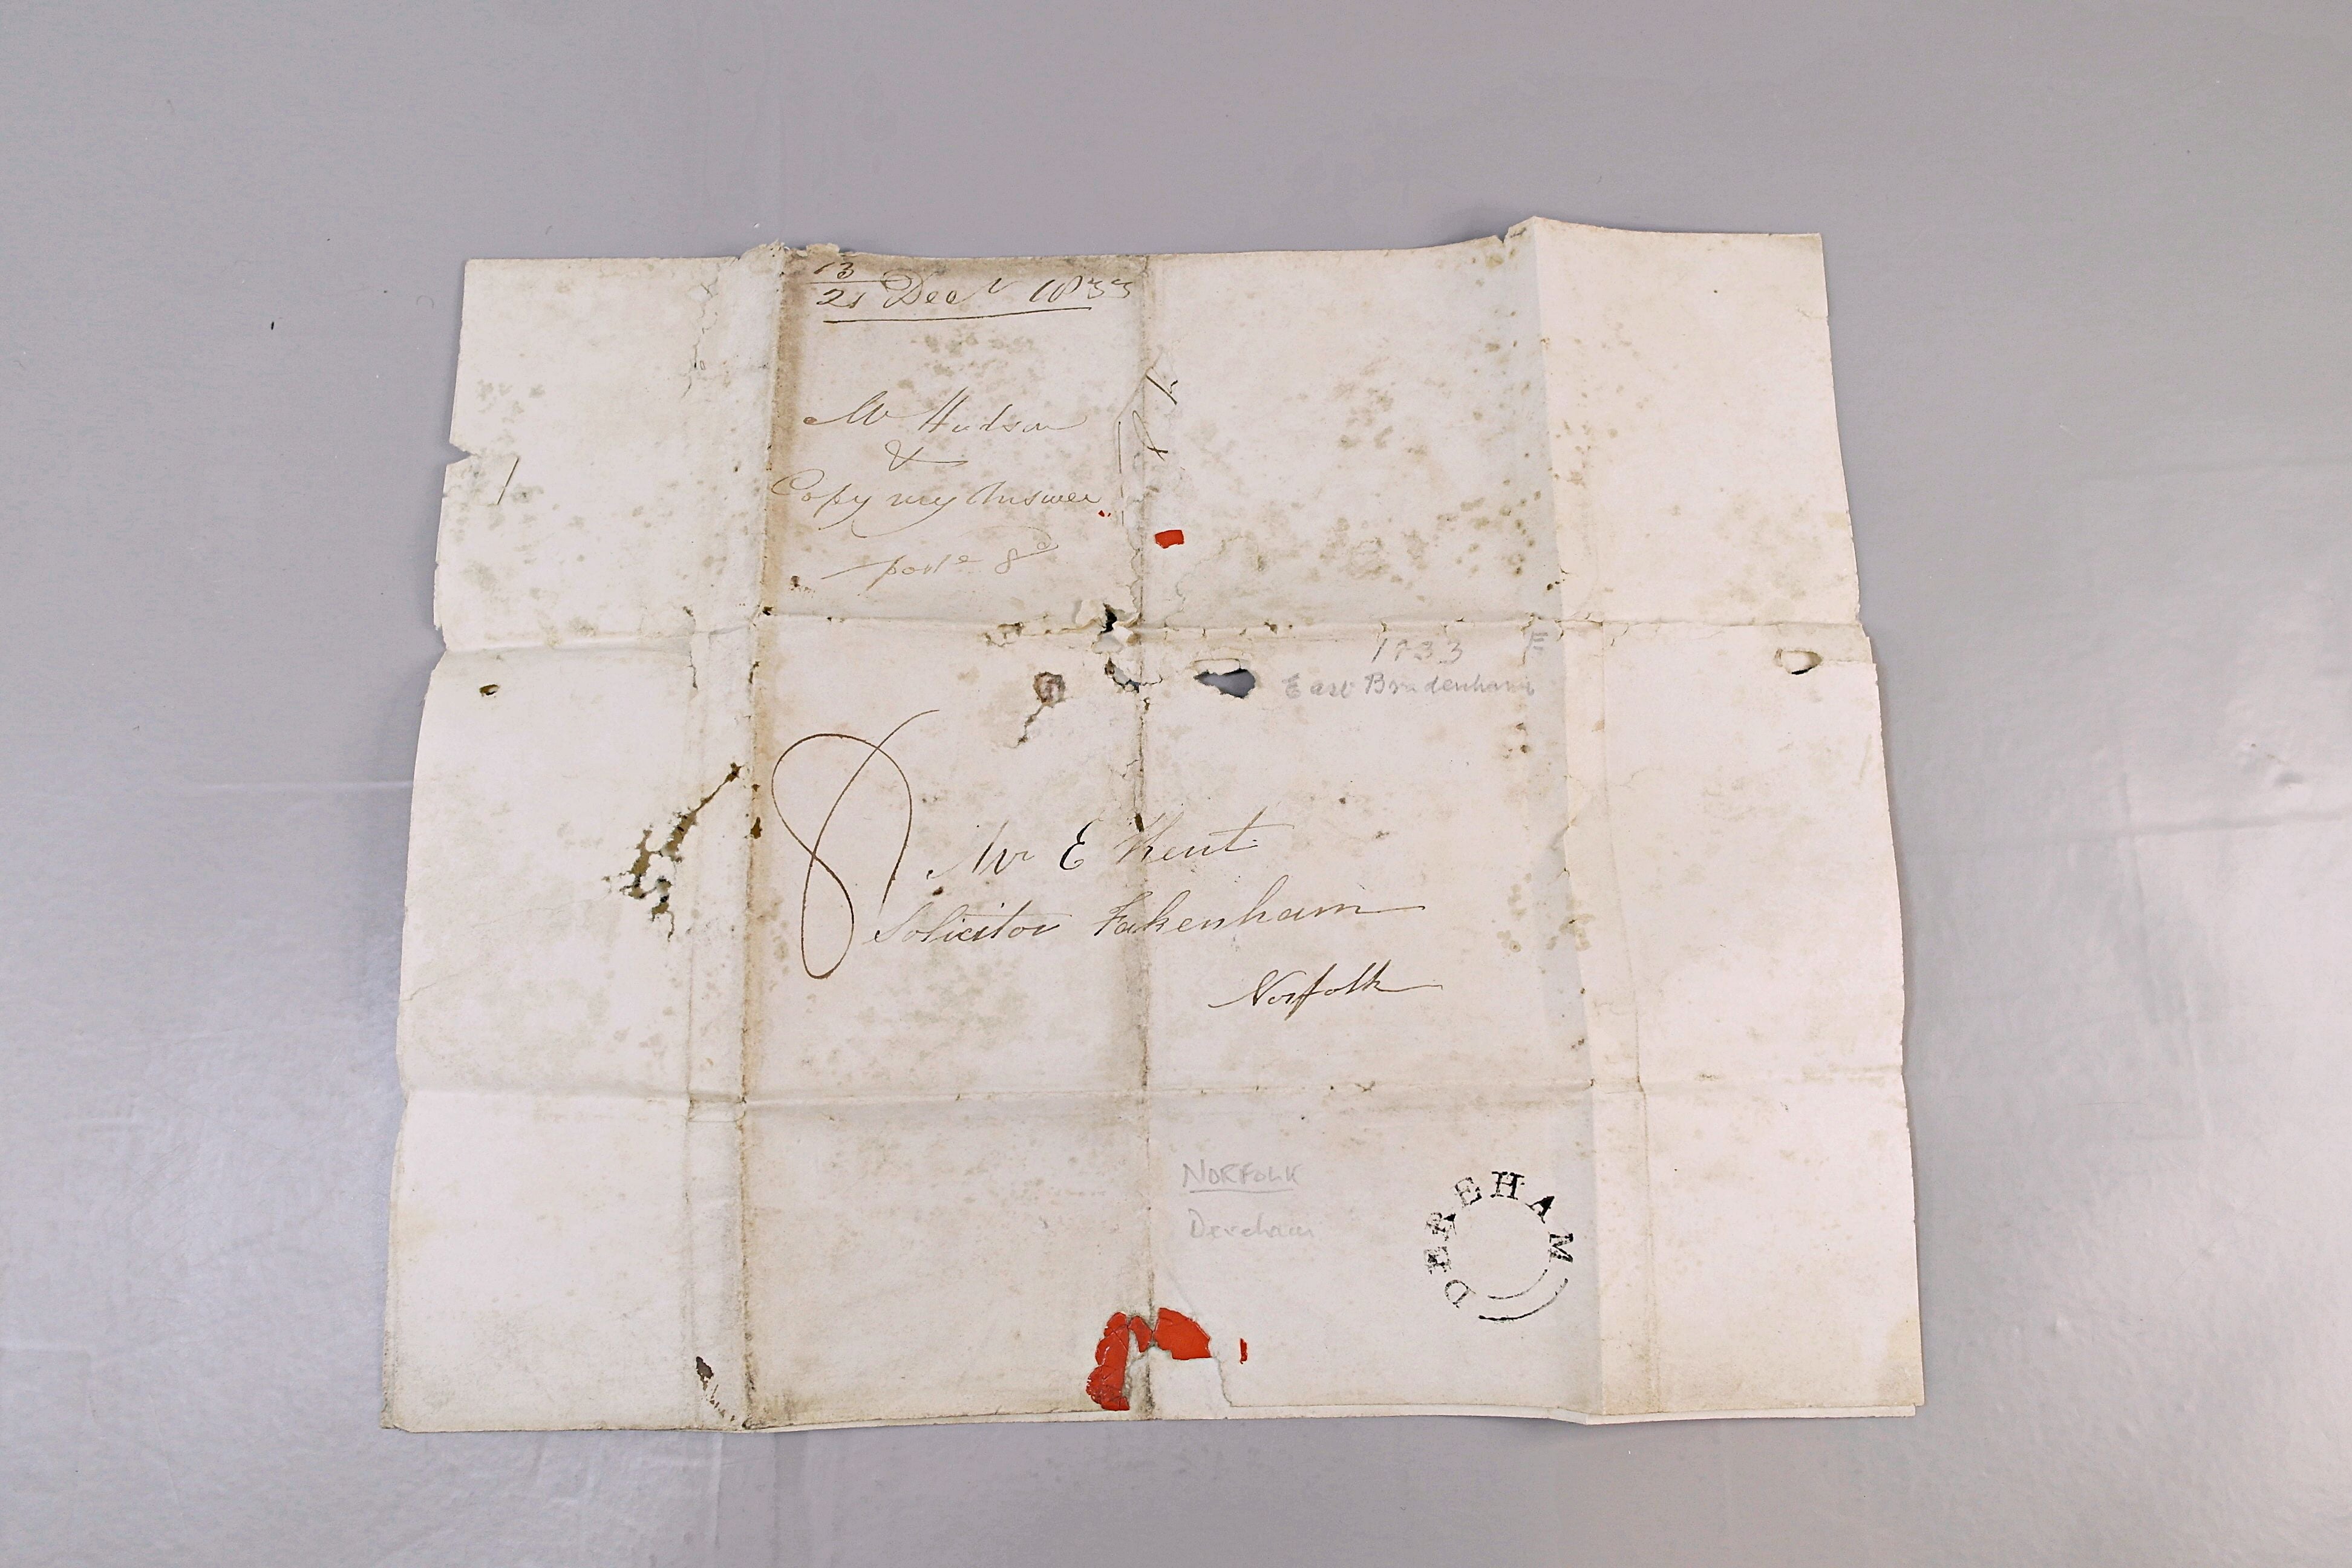 13
21 Decr 1833
Mr Hudson
&
Copy my Answer
post 8d
1833
East Bradenham
8
Mr E Kent
Solicitor Fakenham
Norfolk
NORFOLK
Dereham
DEREHAM